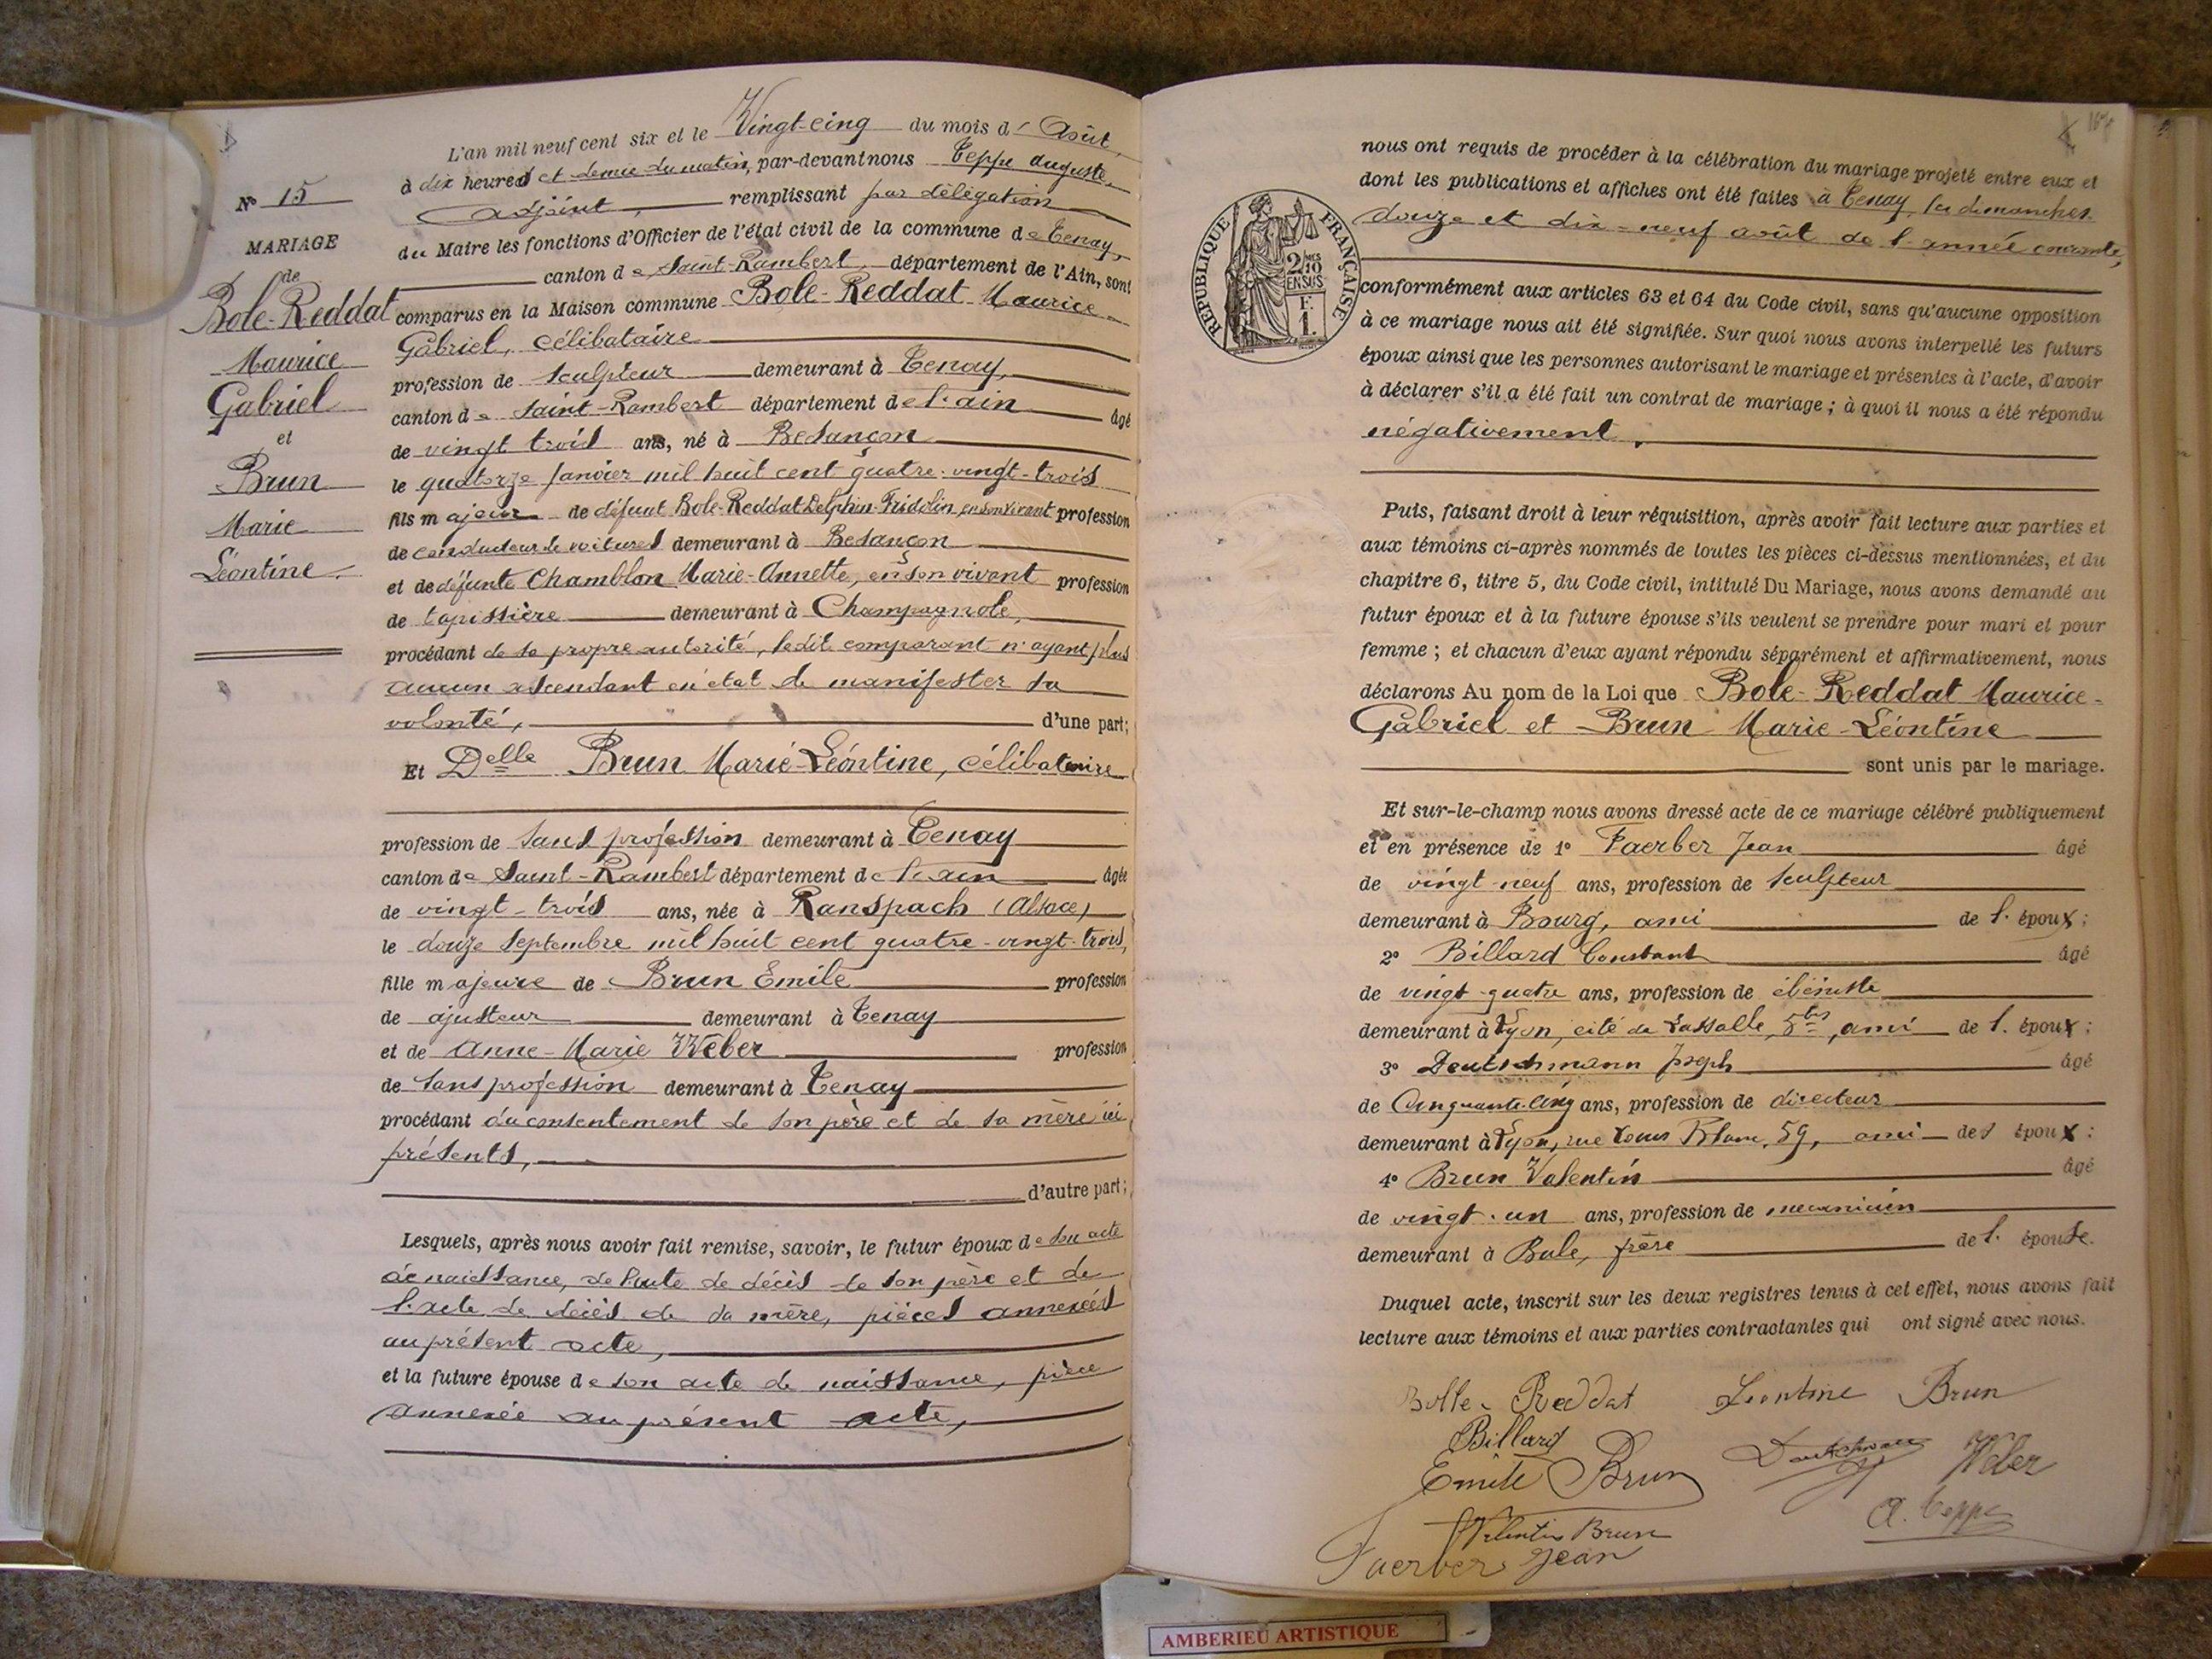 L'an mil neuf cent six et le Vingt-cinq du mois d' Août,
à dix heures et demie du matin, par-devant nous Teppe Auguste,
adjoint, remplissant par délégation
du Maire les fonctions d'Officier de l'état civil de la commune de Tenay,
canton de Saint-Rambert, département de l'Ain, sont
comparus en la Maison commune Bole-Reddat Maurice-
Gabriel, célibataire
profession de sculpteur demeurant à Tenay,
canton de Saint-Rambert département de l'ain âgé
de vingt trois ans, né à Besançon
le quatorze janvier mil huit cent quatre-vingt-trois
fils majeur de défunt Bole-Reddat Delphin-Fridolin, en son vivant profession
de conducteur de voitures demeurant à Besançon
et de défunte Chamblon Marie-Annette, en son vivant profession
de tapissière demeurant à Champagnole,
procédant de sa propre autorité, ledit comparant n'ayant plus
aucun ascendant en état de manifester sa
volonté, d'une part;
Et Delle Brun Marie-Léontine, célibataire
profession de sans profession demeurant à Tenay
canton de Saint-Rambert département de l'ain âgée
de vingt-trois ans, née à Ranspach (Alsace)
le douze septembre mil huit cent quatre-vingt-trois,
fille majeure de Brun Emile profession
de ajusteur demeurant à Tenay
et de Anne-Marie Weber profession
de sans profession demeurant à Tenay
procédant du consentement de son père et de sa mère ici
présents,
d'autre part;
Lesquels, après nous avoir fait remise, savoir, le futur époux de son acte
de naissance, de l'acte de décès de son père et de
l'acte de décès de sa mère, pièces annexées
au présent acte,
et la future épouse de son acte de naissance, pièce
annexée au présent acte,
N° 15
MARIAGE
de
Bole-Reddat
Maurice
Gabriel
et
Brun
Marie
Léontine.
nous ont requis de procéder à la célébration du mariage projeté entre eux et
dont les publications et affiches ont été faites à Tenay, les dimanches
douze et dix-neuf août de l'année courante,
conformément aux articles 63 et 64 du Code civil, sans qu'aucune opposition
à ce mariage nous ait été signifiée. Sur quoi nous avons interpellé les futurs
époux ainsi que les personnes autorisant le mariage et présentes à l'acte, d'avoir
à déclarer s'il a été fait un contrat de mariage; à quoi il nous a été répondu
négativement.
RÉPUBLIQUE FRANÇAISE
2/10 EN SUS
F.
1.
Puis, faisant droit à leur réquisition, après avoir fait lecture aux parties et
aux témoins ci-après nommés de toutes les pièces ci-dessus mentionnées, et du
chapitre 6, titre 5, du Code civil, intitulé Du Mariage, nous avons demandé au
futur époux et à la future épouse s'ils veulent se prendre pour mari et pour
femme; et chacun d'eux ayant répondu séparément et affirmativement, nous
déclarons Au nom de la Loi que Bole-Reddat Maurice-
Gabriel et Brun Marie-Léontine
sont unis par le mariage.
Et sur-le-champ nous avons dressé acte de ce mariage célébré publiquement
et en présence de 1° Faerber Jean âgé
de vingt neuf ans, profession de sculpteur
demeurant à Bourg, ami de l'époux;
2° Billard Constant âgé
de vingt-quatre ans, profession de ébéniste
demeurant à Lyon, cité de Lassalle, 5bis, ami de l'époux;
3° Deutschmann Joseph âgé
de Cinquante-cinq ans, profession de directeur
demeurant à Lyon, rue Louis Blanc, 59, ami de l'époux:
4° Brun Valentin âgé
de vingt-un ans, profession de mécanicien
demeurant à Bale, frère de l'épouse.
Duquel acte, inscrit sur les deux registres tenus à cet effet, nous avons fait
lecture aux témoins et aux parties contractantes qui ont signé avec nous.
Bolle-Reddat Léontine Brun
Billard
Emile Brun Deutschmann Weber
Valentin Brun A. Teppe
Faerber Jean
AMBERIEU ARTISTIQUE